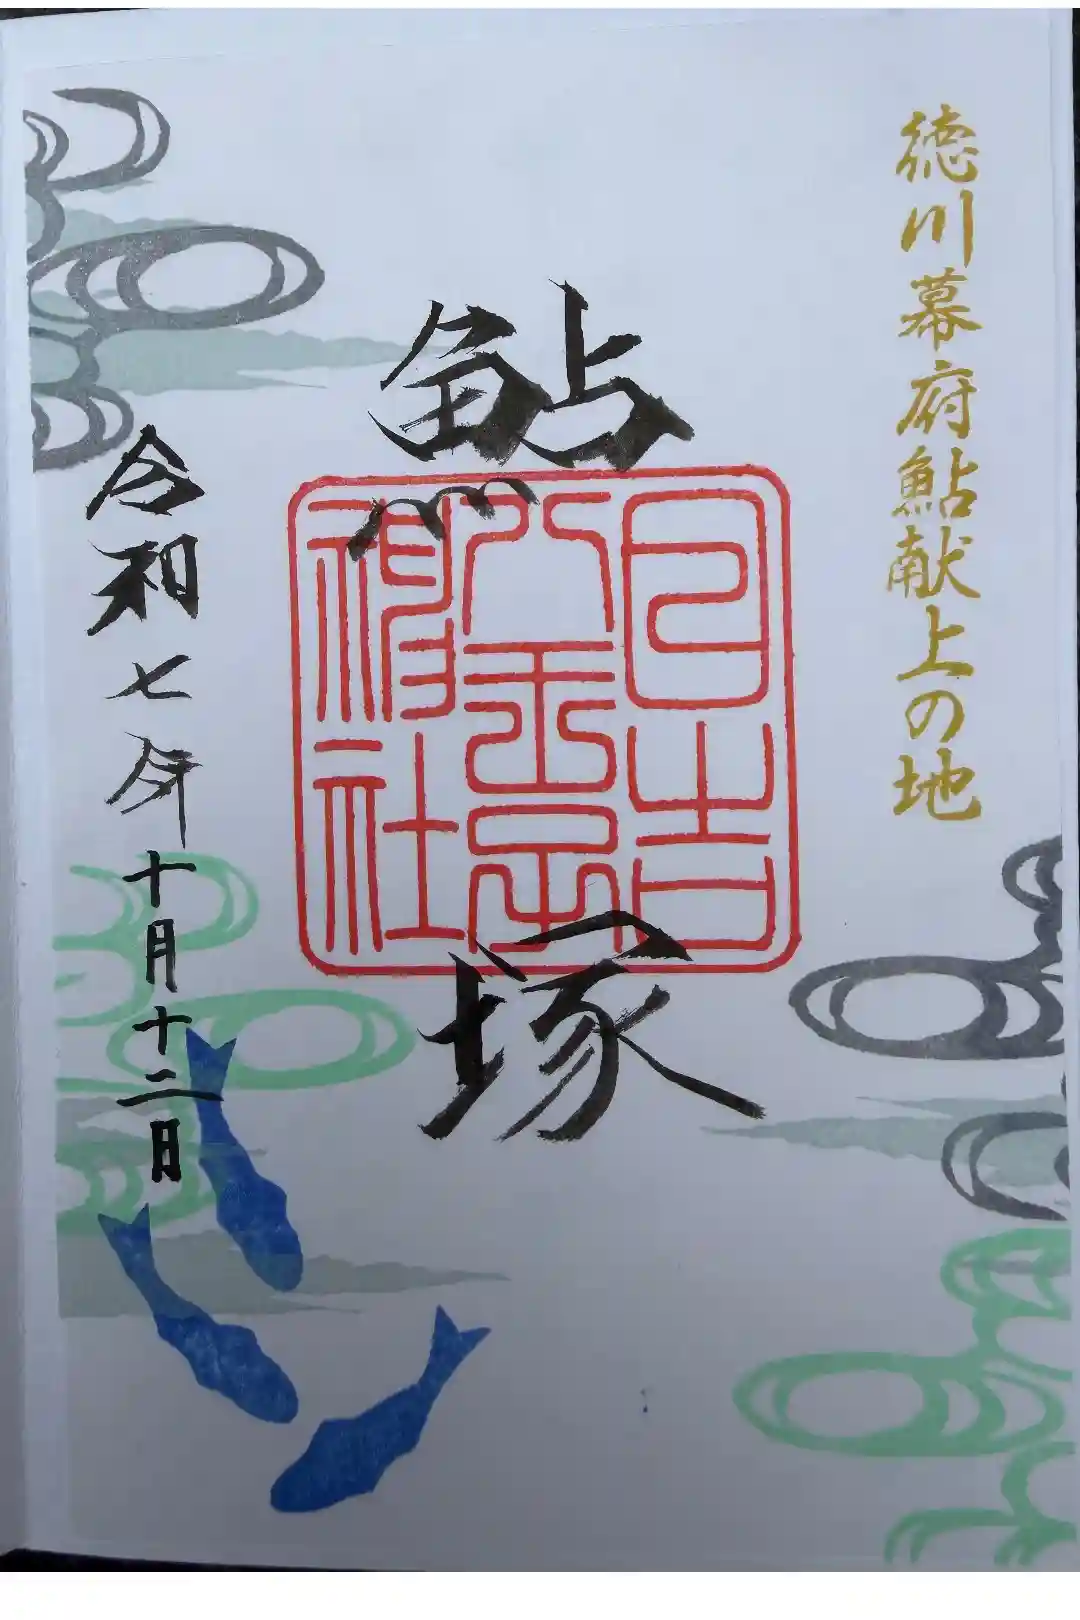 徳川幕府鮎献上の地
鮎塚
日吉
八王子宗
神社
令和七年十月十二日